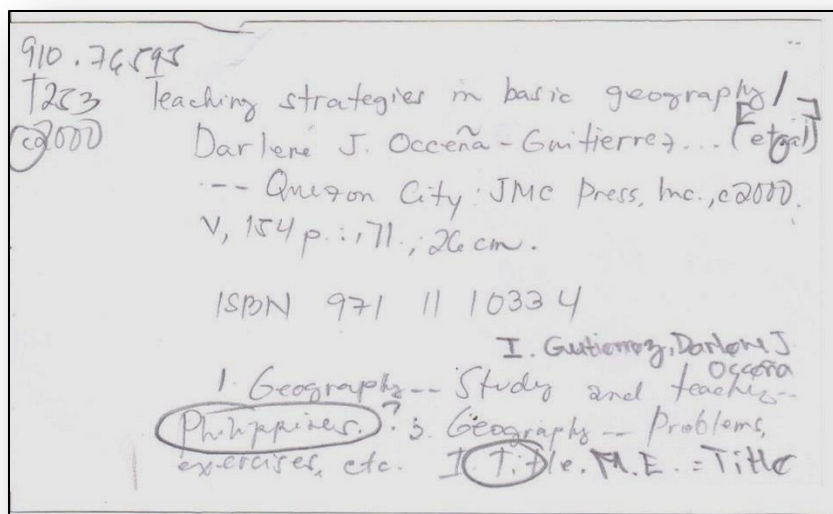 910.76595
T253 Teaching strategies in basic geography /
c2000 Darlene J. Occeña-Guitierrez... [et al]
-- Quezon City: JMC Press, Inc., c2000.
V, 154 p. : ill., ; 26 cm.
ISBN 971 11 1033 4
I. Gutierrez, Darlene J.
Occeña
1. Geography -- Study and teaching --
Philippines. ? 3. Geography -- Problems,
exercises, etc. I. Title. M.E. = Title